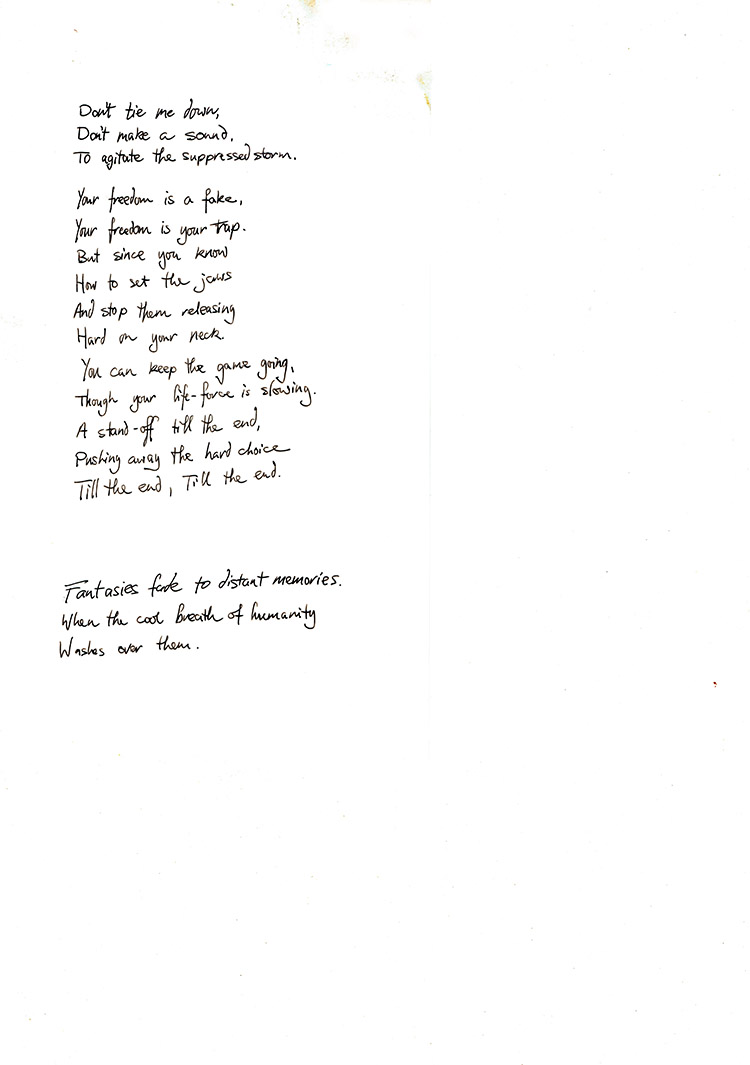 Don't tie me down,
Don't make a sound,
To agitate the suppressed storm.
Your freedom is a fake,
Your freedom is your trap.
But since you know
How to set the jaws
And stop them releasing
Hard on your neck.
You can keep the game going,
Though your life-force is slowing.
A stand-off till the end,
Pushing away the hard choice
Till the end, Till the end.
Fantasies fade to distant memories.
When the cool breath of humanity
Washes over them.